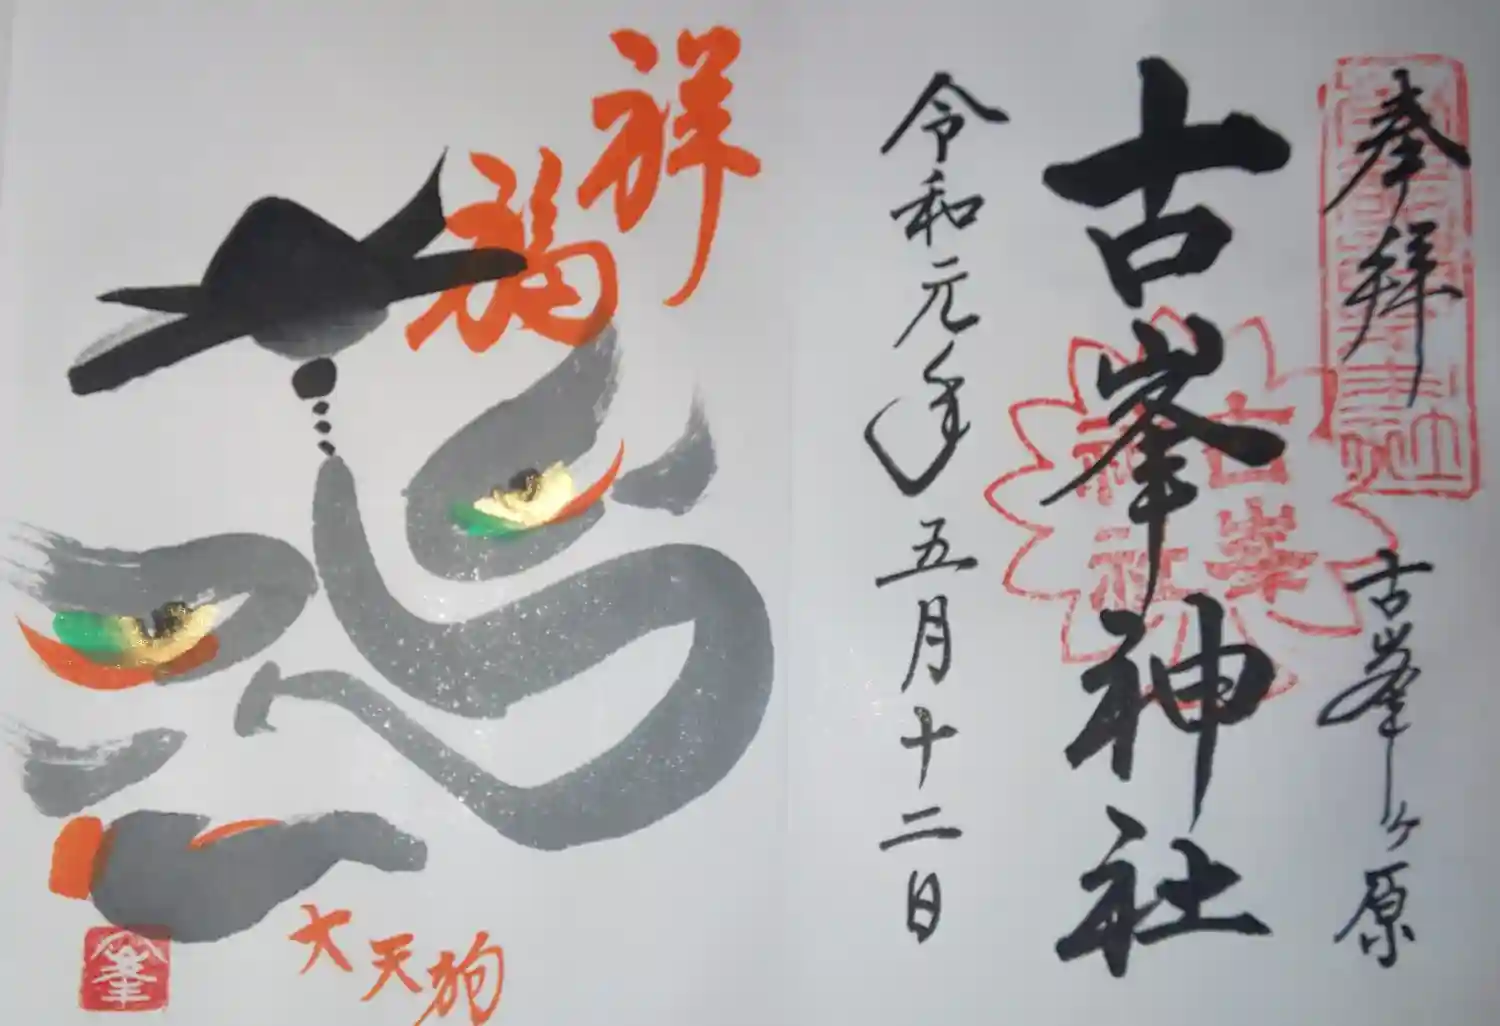 奉拝
古峯ヶ原
古峯神社
古峯
神社
令和元年五月十二日
祥
福
大天狗
峯